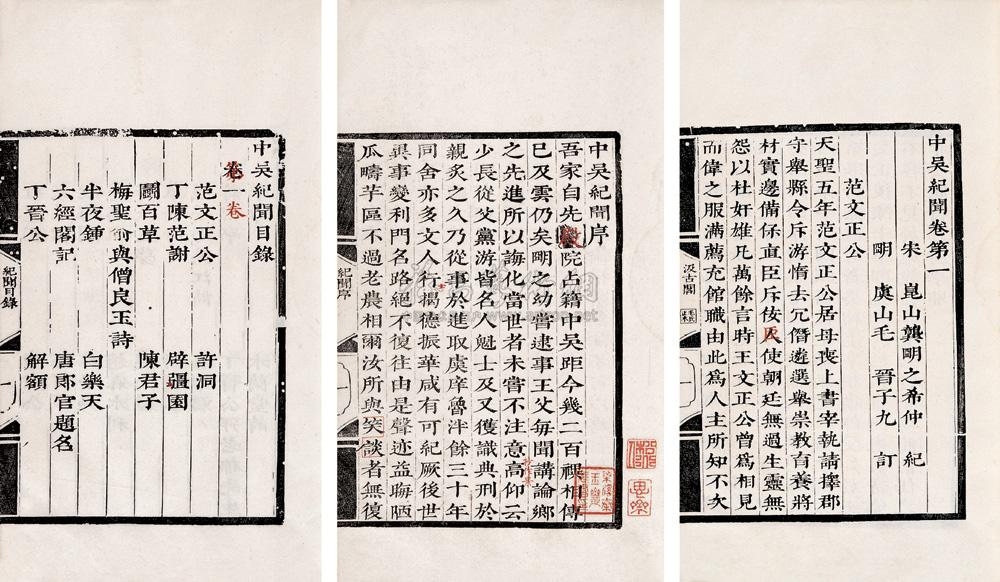 中吳紀聞目錄
第一卷
范文正公 許洞
丁陳范謝 辟疆園
鬭百草 陳君子
梅聖俞與僧良玉詩
半夜鍾 白樂天
六經閣記 唐郎官題名
丁晉公 解額
紀聞目錄
一
中吳紀聞序
吾家自先殿院占籍中吳距今幾二百禩相傳
已及雲仍矣明之幼嘗逮事王父每聞講論鄉
之先進所以誨化當世者未嘗不注意高仰云
少長從父黨游皆名人魁士及又獲識典刑於
親炙之久乃從事於進取虞庠魯泮餘三十年
同舍亦多文人行揭德振華咸有可紀厥後世
異事變利門名路絕不復往由是聲迹益晦陋
瓜疇芋區不過老農相爾汝所與笑談者無復
紀聞序
一
中吳紀聞卷第一
宋 崑山龔明之希仲 紀
明 虞山毛 晉子九 訂
范文正公
天聖五年范文正公居母喪上書宰執請擇郡
守舉縣令斥游惰去冗僭遴選舉崇教育養將
材實邊備保直臣斥佞使朝廷無過生靈無
怨以杜奸雄凡萬餘言時王文正公曾爲相見
而偉之服滿薦充館職由此爲人主所知不次
汲古閣
一